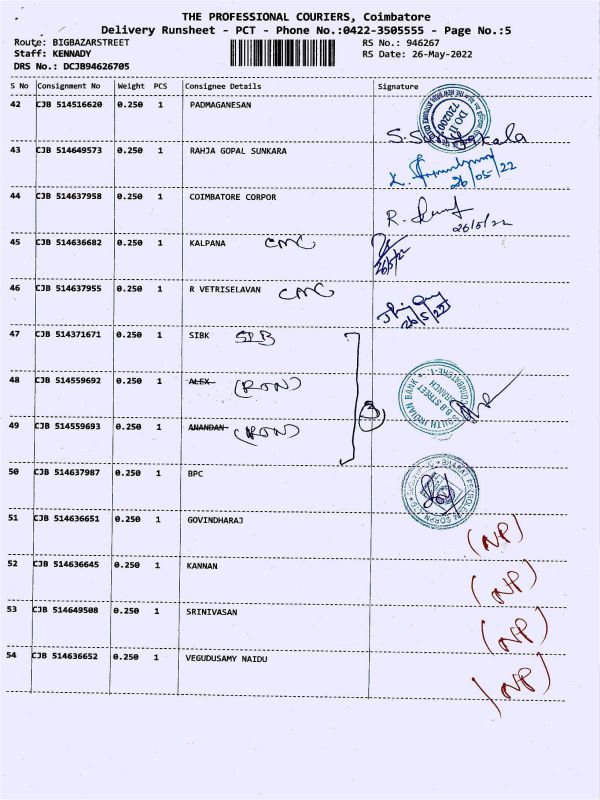 THE PROFESSIONAL COURIERS, Coimbatore
Delivery Runsheet - PCT - Phone No.:0422-3505555 - Page No.:5
Route: BIGBAZARSTREET RS No.: 946267
Staff: KENNADY RS Date: 26-May-2022
DRS No.: DCJB94626705
S No Consignment No Weight PCS Consignee Details Signature
42 CJB 514516620 0.250 1 PADMAGANESAN
43 CJB 514649573 0.250 1 RAHJA GOPAL SUNKARA
26/05/22
44 CJB 514637958 0.250 1 COIMBATORE CORPOR
26/5/22
45 CJB 514636682 0.250 1 KALPANA CMC
26/5/22
46 CJB 514637955 0.250 1 R VETRISELAVAN CMC
26/5/22
47 CJB 514371671 0.250 1 SIBK SIB
48 CJB 514559692 0.250 1 ALEX (RTN)
SOUTH INDIAN BANK
B B STREET
BRANCH
COIMBATORE-1
49 CJB 514559693 0.250 1 ANANDAN (RTN)
3
50 CJB 514637987 0.250 1 BPC
51 CJB 514636651 0.250 1 GOVINDHARAJ (NP)
52 CJB 514636645 0.250 1 KANNAN (NP)
53 CJB 514649508 0.250 1 SRINIVASAN (NP)
54 CJB 514636652 0.250 1 VEGUDUSAMY NAIDU (NP)